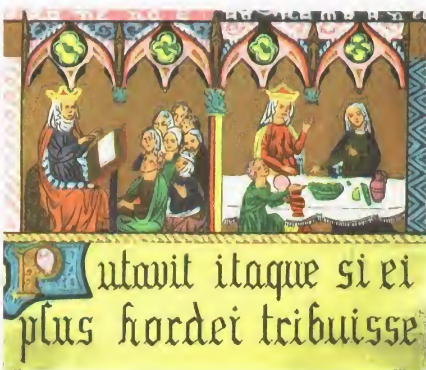 Putavit itaque si ei
plus hordei tribuisse